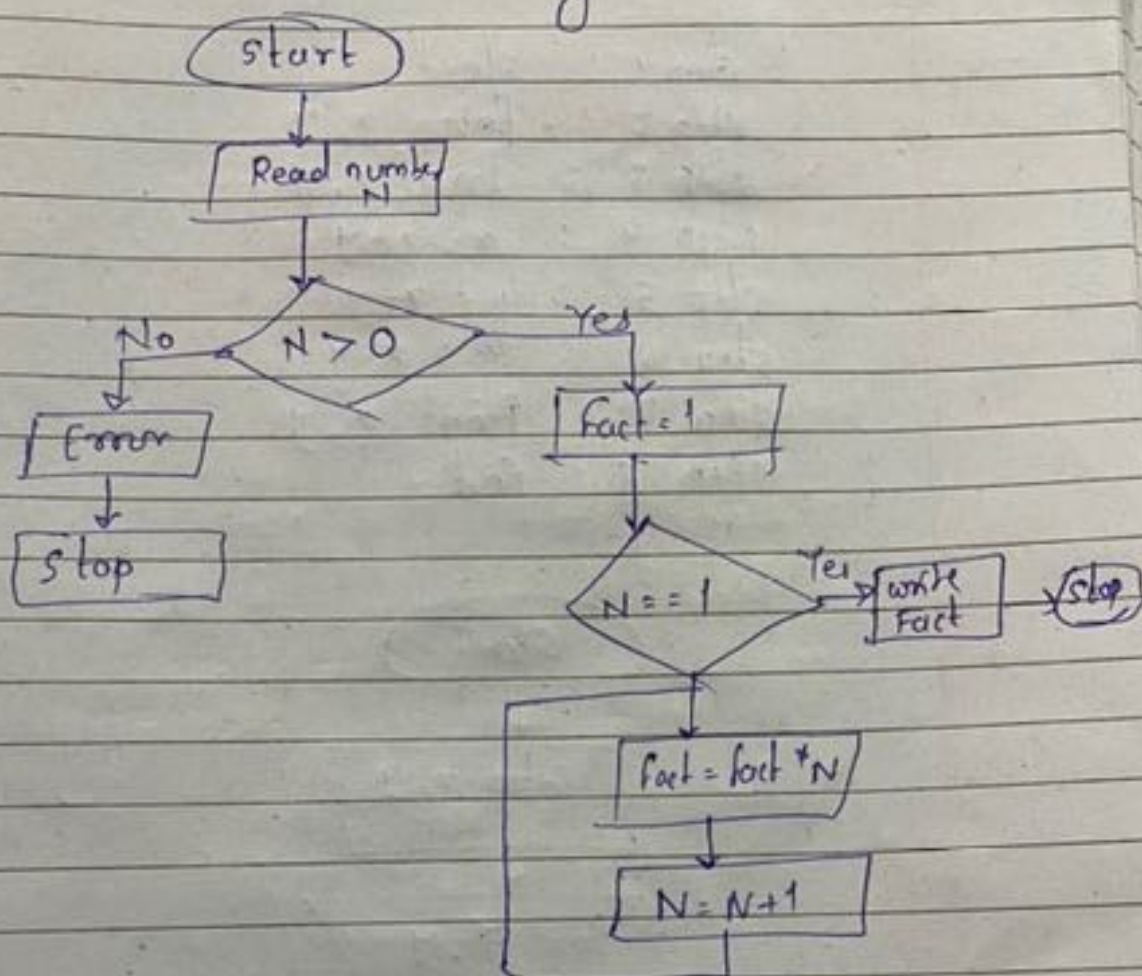 Start
Read number
N
N > 0
No
Yes
Error
Stop
Fact = 1
N == 1
Yes
write
Fact
Stop
Fact = fact * N
N = N + 1